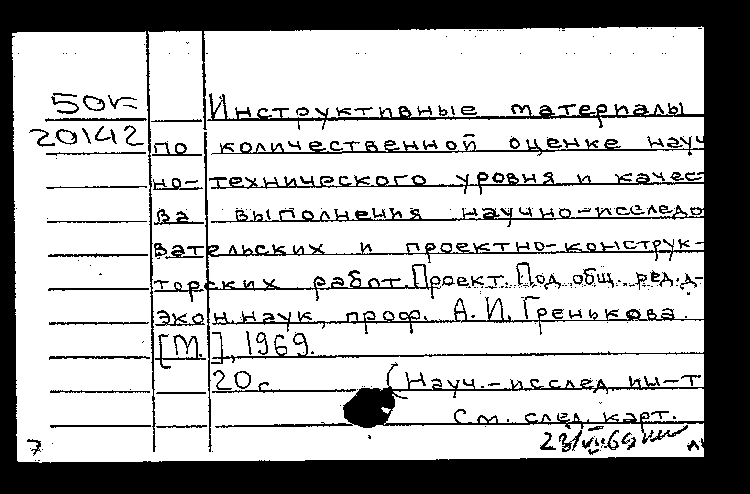 50к Инструктивные материалы
20142 по количественной оценке науч
но-технического уровня и качес-
ва выполнения научно-исследо
вательских и проектно-конструк-
торских работ. Проект. Под общ. ред. д-
экон. наук, проф. А. И. Гренькова.
[М.], 1969.
20 с (Науч.-исслед ин-т
См. след. карт.
7